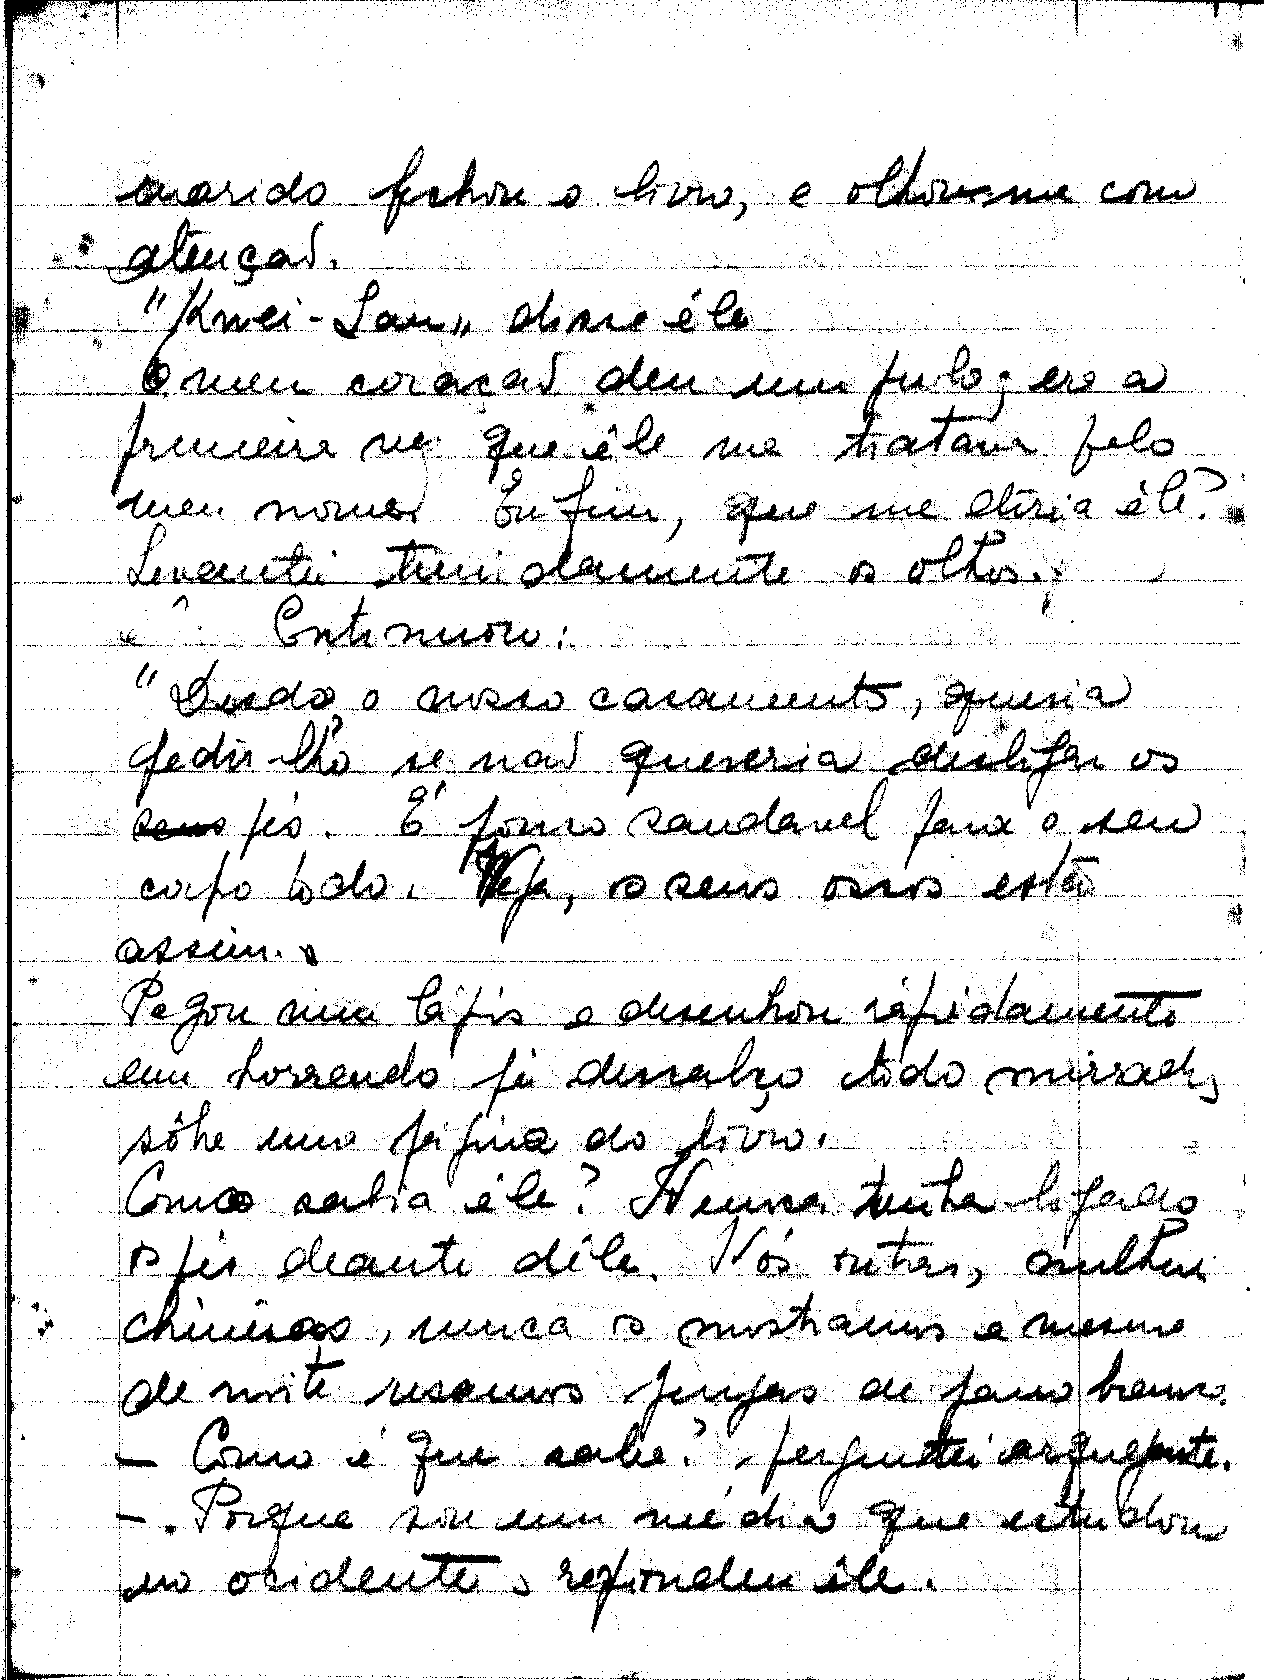 marido fechou o livro, e olhou-me com
atenção.
"Kwei-Lan" disse êle
O meu coração deu um pulo; era a
primeira vez que êle me tratava pelo
meu nome. Enfim, que me diria êle?
Levantei timidamente os olhos.
Continuou:
"Desde o nosso casamento, queria
pedir-lhe se não quereria desligar os
seus pés. É pouco saudavel para o seu
corpo todo. Veja, os seus ossos estão
assim.
Pegou num lápis e desenhou ràpidamente
um horrendo pé descalço todo mirrado,
sôbre uma página do livro.
Como sabia êle? Nunca tinha ligado
os pés deante dêle. Nós outras, mulheres
chinesas, nunca os mostramos e mesmo
de noite usamos peúgas de pano branco.
— Como é que sabe? perguntei arquejante.
— Porque sou um médico que estudou
no ocidente, respondeu êle.